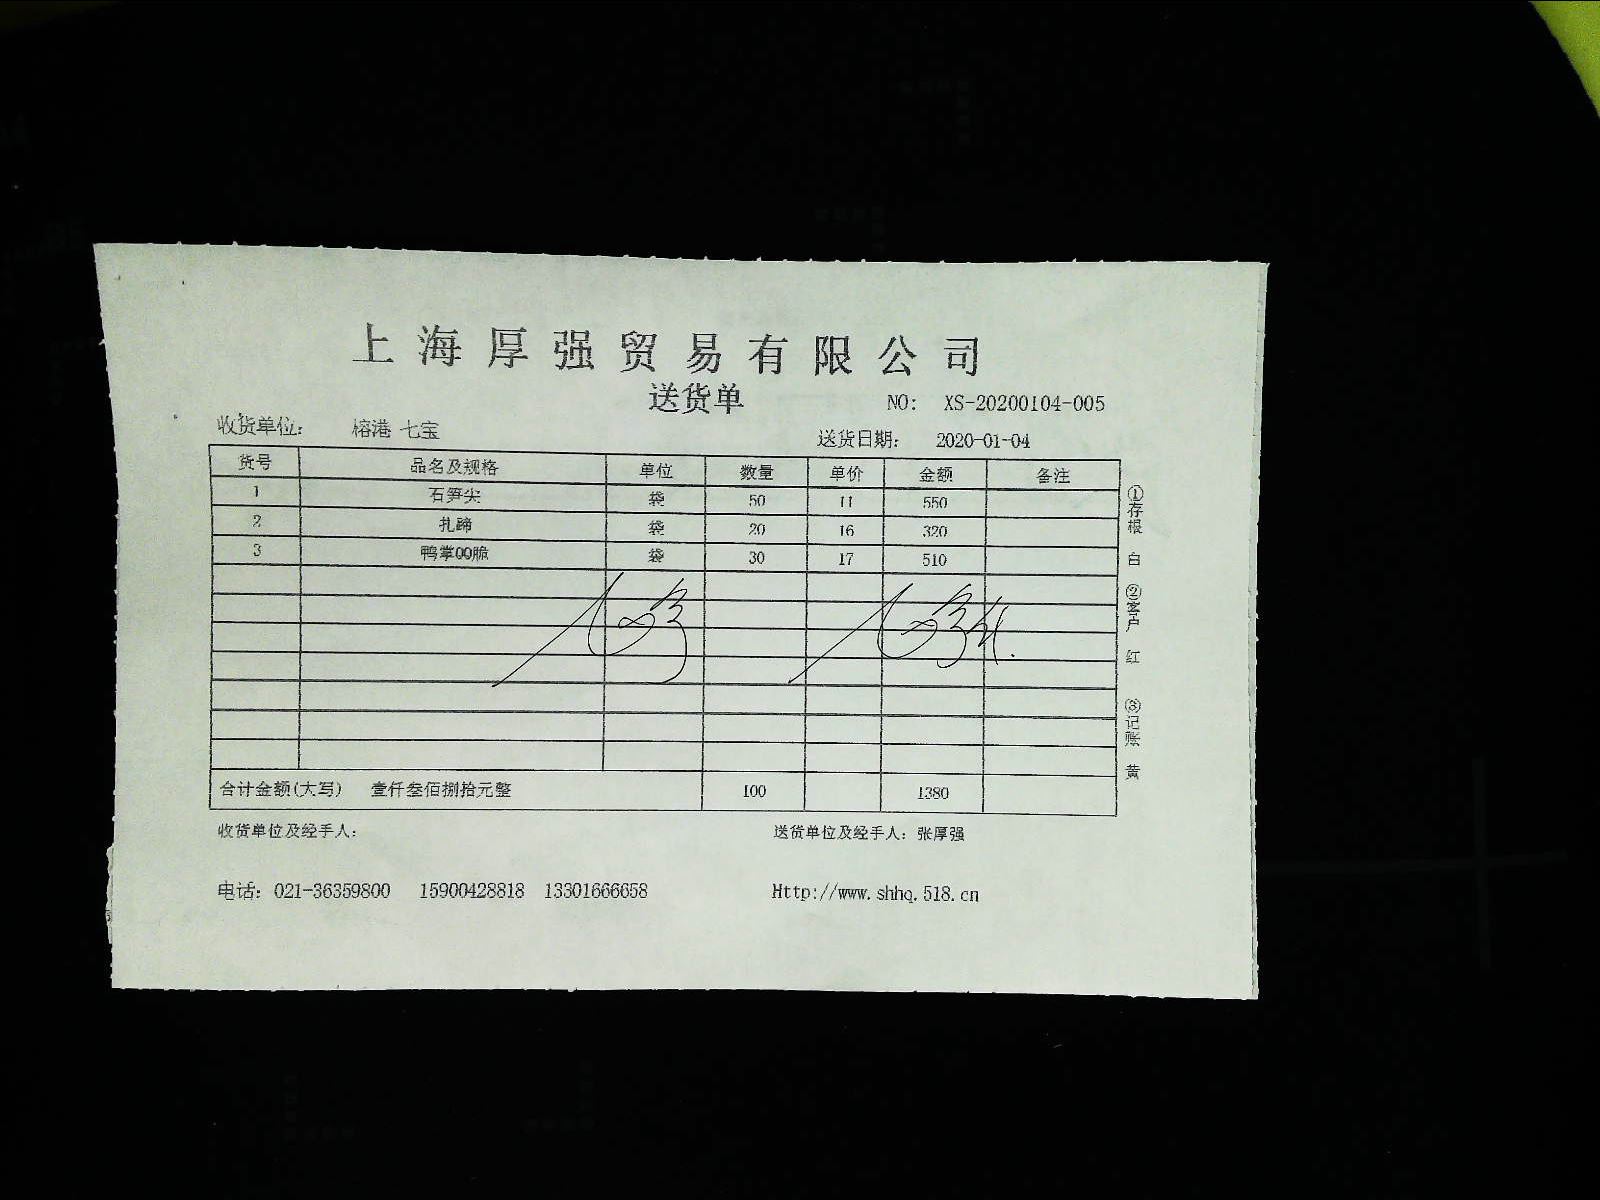 上海厚强贸易有限公司
送货单
NO: XS-20200104-005
收货单位: 榕港 七宝
送货日期: 2020-01-04
货号 品名及规格 单位 数量 单价 金额 备注
1 石笋尖 袋 50 11 550
2 扎蹄 袋 20 16 320
3 鸭掌QQ脆 袋 30 17 510
合计金额(大写) 壹仟叁佰捌拾元整 100 1380
收货单位及经手人:
送货单位及经手人: 张厚强
电话: 021-36359800 15900428818 13301666658
Http://www.shhq.518.cn
①存根 白 ②客户 红 ③记账 黄